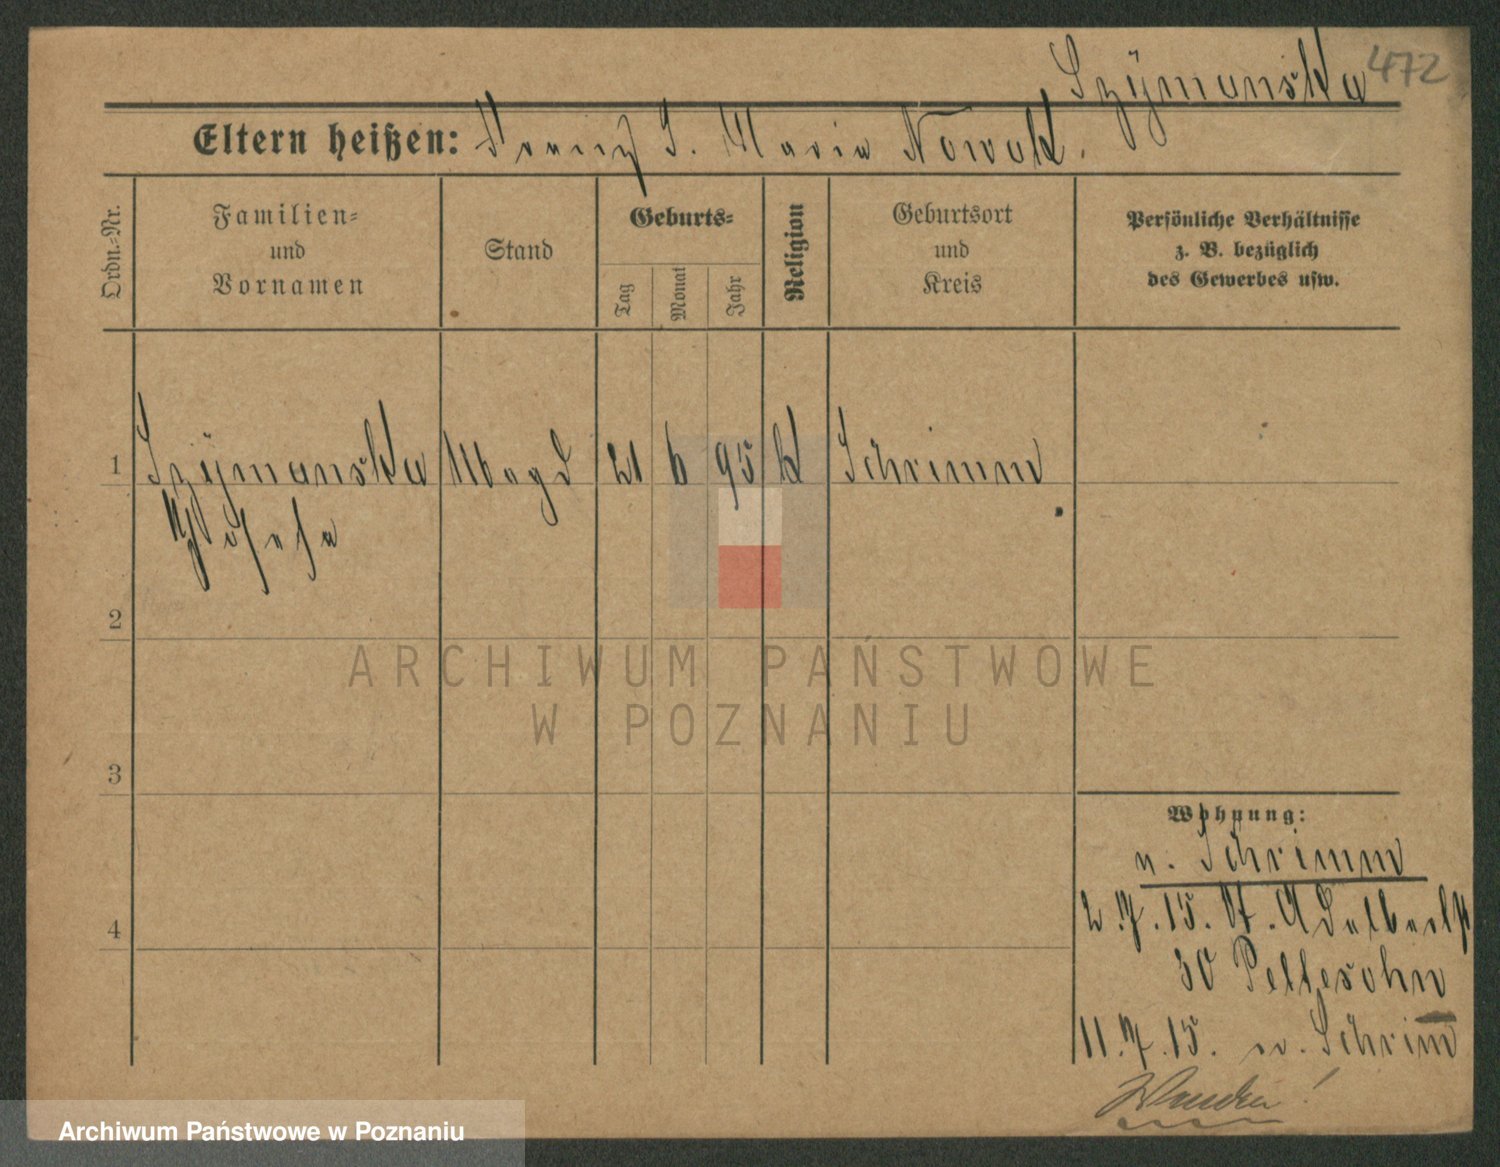 472
Szÿmanska
Eltern heißen: Franz S. Maria Nowak.
Ordn.-Nr.
Familien-
und
Vornamen
Stand
Geburts-
Tag
Monat
Jahr
Religion
Geburtsort
und
Kreis
Persönliche Verhältnisse
z. B. bezüglich
des Gewerbes usw.
1 Szÿmanska Magd 21 6 95 k Schrimm
Josefa
2
ARCHIWUM PAŃSTWOWE
W POZNANIU
3
Wohnung:
v. Schrimm
2.7.15. St. Adalbert
30 Pellesohn
4
11.7.15. n. Schrim̅
Archiwum Państwowe w Poznaniu